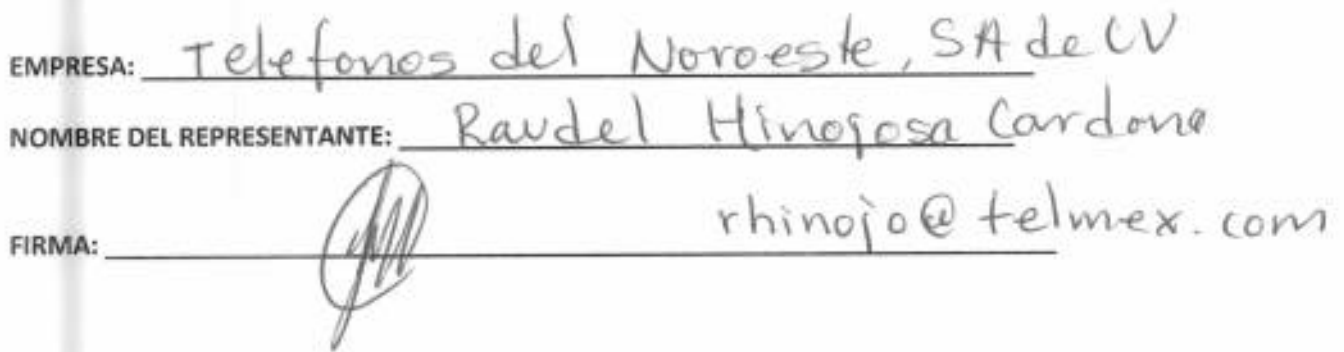 EMPRESA: Telefonos del Noroeste, SA de CV
NOMBRE DEL REPRESENTANTE: Raudel Hinojosa Cardona
FIRMA: rhinojo@telmex.com